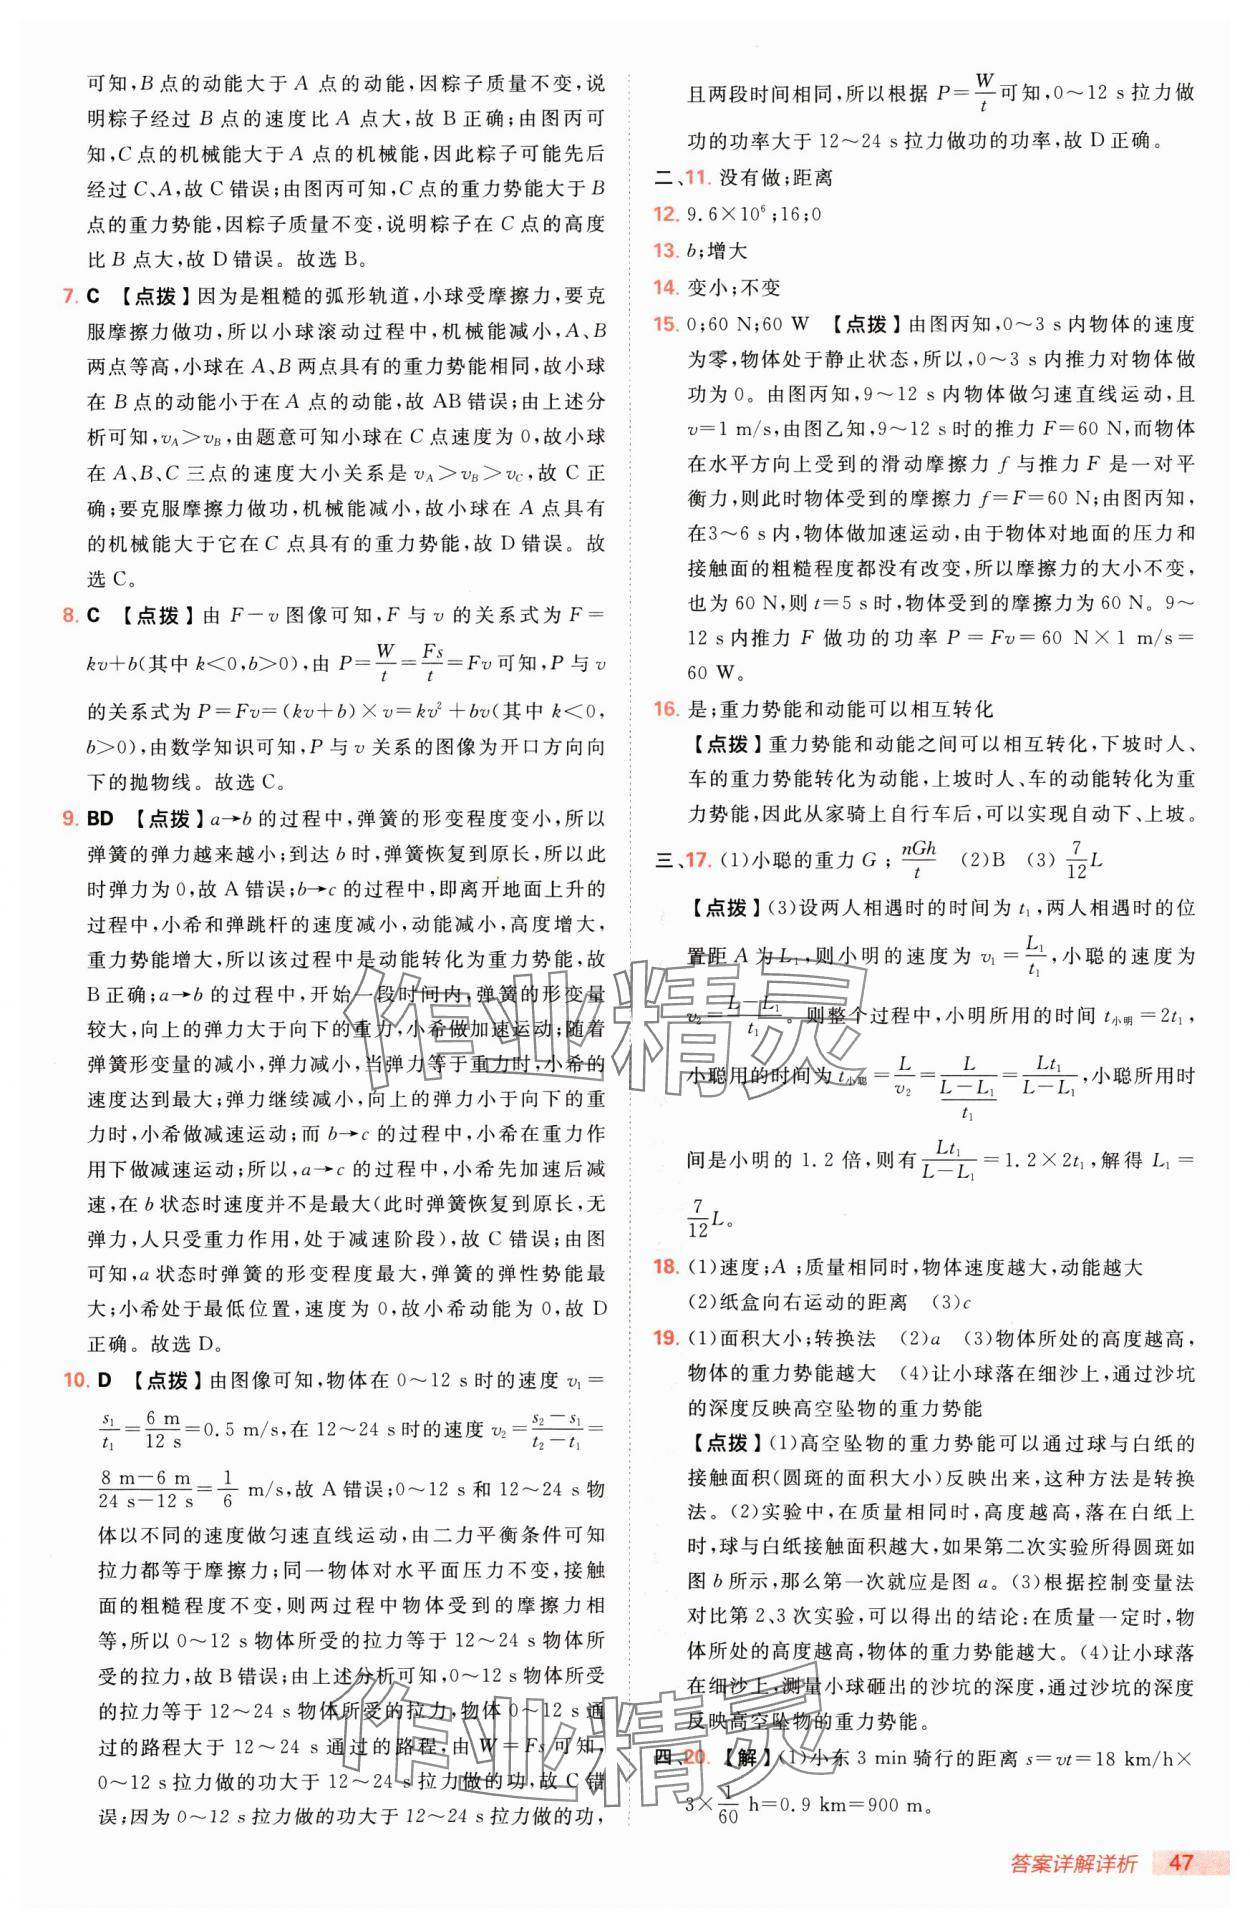 可知,B 点的动能大于 A 点的动能,因粽子质量不变,说
明粽子经过 B 点的速度比 A 点大,故 B 正确;由图丙可
知,C 点的机械能大于 A 点的机械能,因此粽子可能先后
经过 C、A,故 C 错误;由图丙可知,C 点的重力势能大于 B
点的重力势能,因粽子质量不变,说明粽子在 C 点的高度
比 B 点大,故 D 错误。故选 B。
7. C 【点拨】因为是粗糙的弧形轨道,小球受摩擦力,要克
服摩擦力做功,所以小球滚动过程中,机械能减小,A、B
两点等高,小球在 A、B 两点具有的重力势能相同,故小球
在 B 点的动能小于在 A 点的动能,故 AB 错误;由上述分
析可知,v_A>v_B,由题意可知小球在 C 点速度为 0,故小球
在 A、B、C 三点的速度大小关系是 v_A>v_B>v_C,故 C 正
确;要克服摩擦力做功,机械能减小,故小球在 A 点具有
的机械能大于它在 C 点具有的重力势能,故 D 错误。故
选 C。
8. C 【点拨】由 F-v 图像可知,F 与 v 的关系式为 F=
kv+b(其中 k<0,b>0),由 P=W/t=Fs/t=Fv 可知,P 与 v
的关系式为 P=Fv=(kv+b)×v=kv²+bv(其中 k<0,
b>0),由数学知识可知,P 与 v 关系的图像为开口方向向
下的抛物线。故选 C。
9. BD 【点拨】a→b 的过程中,弹簧的形变程度变小,所以
弹簧的弹力越来越小;到达 b 时,弹簧恢复到原长,所以此
时弹力为 0,故 A 错误;b→c 的过程中,即离开地面上升的
过程中,小希和弹跳杆的速度减小,动能减小,高度增大,
重力势能增大,所以该过程中是动能转化为重力势能,故
B 正确;a→b 的过程中,开始一段时间内,弹簧的形变量
较大,向上的弹力大于向下的重力,小希做加速运动;随着
弹簧形变量的减小,弹力减小,当弹力等于重力时,小希的
速度达到最大;弹力继续减小,向上的弹力小于向下的重
力时,小希做减速运动;而 b→c 的过程中,小希在重力作
用下做减速运动;所以,a→c 的过程中,小希先加速后减
速,在 b 状态时速度并不是最大(此时弹簧恢复到原长,无
弹力,人只受重力作用,处于减速阶段),故 C 错误;由图
可知,a 状态时弹簧的形变程度最大,弹簧的弹性势能最
大;小希处于最低位置,速度为 0,故小希动能为 0,故 D
正确。故选 D。
10. D 【点拨】由图像可知,物体在 0~12 s 时的速度 v₁=
s₁/t₁=6 m/12 s=0.5 m/s,在 12~24 s 时的速度 v₂=(s₂-s₁)/(t₂-t₁)=
(8 m-6 m)/(24 s-12 s)=1/6 m/s,故 A 错误;0~12 s 和 12~24 s 物
体以不同的速度做匀速直线运动,由二力平衡条件可知
拉力都等于摩擦力;同一物体对水平面压力不变,接触
面的粗糙程度不变,则两过程中物体受到的摩擦力相
等,所以 0~12 s 物体所受的拉力等于 12~24 s 物体所
受的拉力,故 B 错误;由上述分析可知,0~12 s 物体所受
的拉力等于 12~24 s 物体所受的拉力,物体 0~12 s 通
过的路程大于 12~24 s 通过的路程,由 W=Fs 可知,
0~12 s 拉力做的功大于 12~24 s 拉力做的功,故 C 错
误;因为 0~12 s 拉力做的功大于 12~24 s 拉力做的功,
且两段时间相同,所以根据 P=W/t 可知,0~12 s 拉力做
功的功率大于 12~24 s 拉力做功的功率,故 D 正确。
二、11. 没有做;距离
12. 9.6×10⁶;16;0
13. b;增大
14. 变小;不变
15. 0;60 N;60 W 【点拨】由图丙知,0~3 s 内物体的速度
为零,物体处于静止状态,所以,0~3 s 内推力对物体做
功为 0。由图丙知,9~12 s 内物体做匀速直线运动,且
v=1 m/s,由图乙知,9~12 s 时的推力 F=60 N,而物体
在水平方向上受到的滑动摩擦力 f 与推力 F 是一对平
衡力,则此时物体受到的摩擦力 f=F=60 N;由图丙知,
在3~6 s 内,物体做加速运动,由于物体对地面的压力和
接触面的粗糙程度都没有改变,所以摩擦力的大小不变,
也为 60 N,则 t=5 s 时,物体受到的摩擦力为 60 N。9~
12 s 内推力 F 做功的功率 P=Fv=60 N×1 m/s=
60 W。
16. 是;重力势能和动能可以相互转化
【点拨】重力势能和动能之间可以相互转化,下坡时人、
车的重力势能转化为动能,上坡时人、车的动能转化为重
力势能,因此从家骑上自行车后,可以实现自动下、上坡。
三、17. (1)小聪的重力 G ; nGh/t (2)B (3) 7/12 L
【点拨】(3)设两人相遇时的时间为 t₁,两人相遇时的位
置距 A 为 L₁,则小明的速度为 v₁=L₁/t₁,小聪的速度为
v₂=(L-L₁)/t₁。则整个过程中,小明所用的时间 t小明=2t₁,
小聪用的时间为 t小聪=L/v₂=L/((L-L₁)/t₁)=Lt₁/(L-L₁),小聪所用时
间是小明的 1.2 倍,则有 Lt₁/(L-L₁)=1.2×2t₁,解得 L₁=
7/12 L。
18. (1)速度;A ;质量相同时,物体速度越大,动能越大
(2)纸盒向右运动的距离 (3)c
19. (1)面积大小;转换法 (2)a (3)物体所处的高度越高,
物体的重力势能越大 (4)让小球落在细沙上,通过沙坑
的深度反映高空坠物的重力势能
【点拨】(1)高空坠物的重力势能可以通过球与白纸的
接触面积(圆斑的面积大小)反映出来,这种方法是转换
法。(2)实验中,在质量相同时,高度越高,落在白纸上
时,球与白纸接触面积越大,如果第二次实验所得圆斑如
图 b 所示,那么第一次就应是图 a。(3)根据控制变量法
对比第 2、3 次实验,可以得出的结论:在质量一定时,物
体所处的高度越高,物体的重力势能越大。(4)让小球落
在细沙上,测量小球砸出的沙坑的深度,通过沙坑的深度
反映高空坠物的重力势能。
四、20. 【解】(1)小东 3 min 骑行的距离 s=vt=18 km/h×
3×1/60 h=0.9 km=900 m。
答案详解详析 47
作业精灵
作业精灵